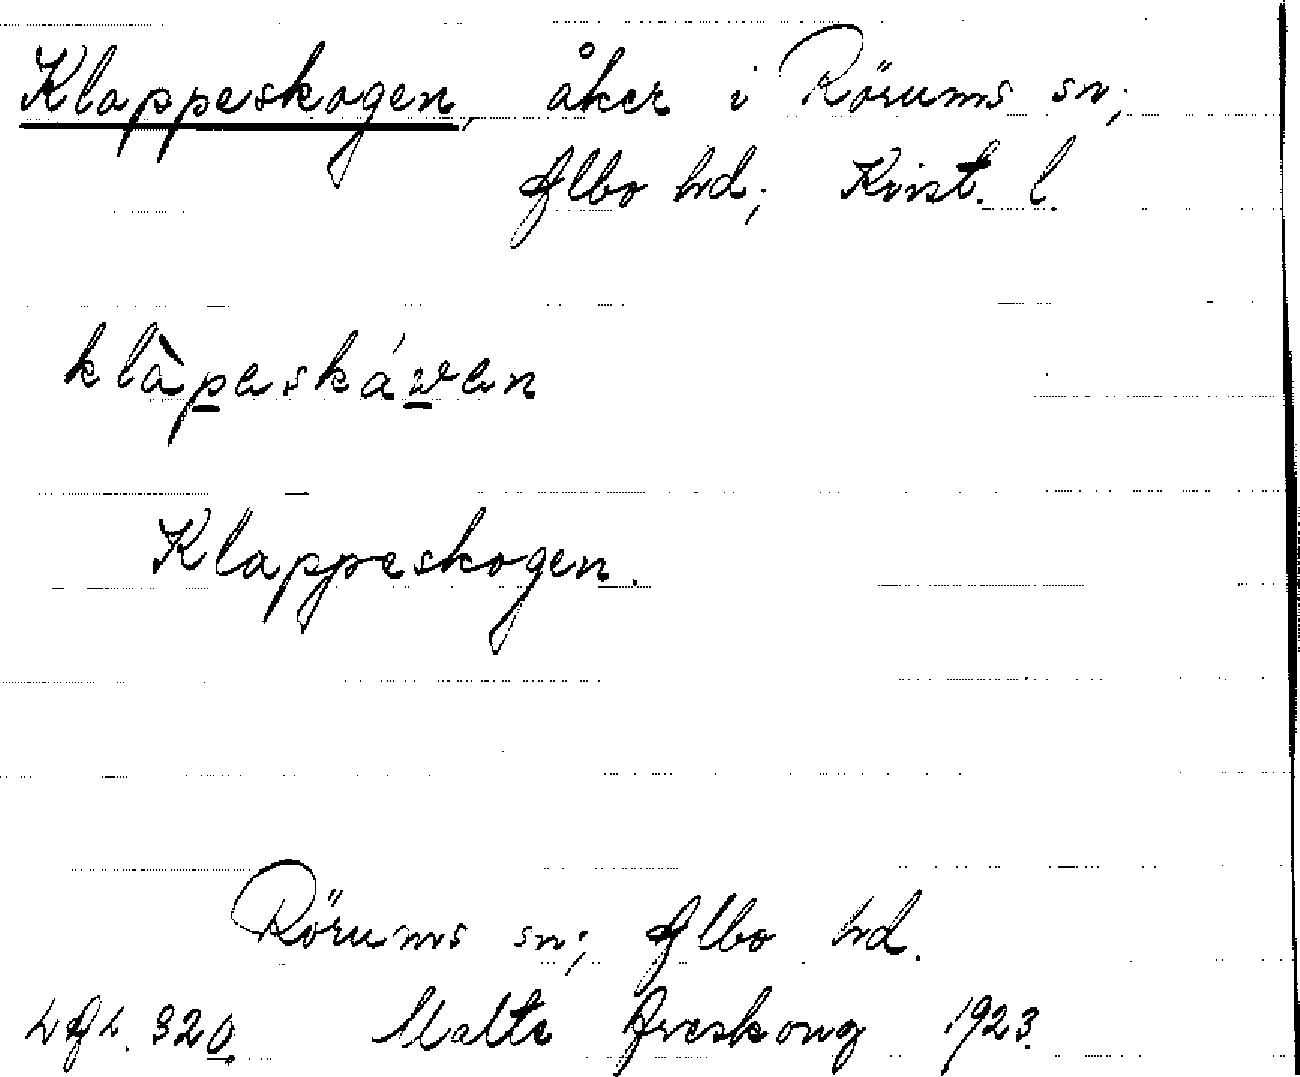 Klappeskogen, åker i Rörums sn;
Albo hd; Krist. l.
klàpeskáwen
Klappeskogen.
Rörums sn; Albo hd.
LAL. 320. Malte Areskoug 1923.